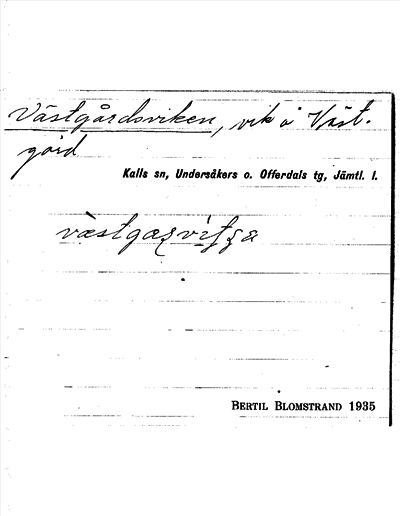 Västgårdsviken, vik å Väst-
gård
Kalls sn, Undersåkers o. Offerdals tg, Jämtl. l.
BERTIL BLOMSTRAND 1935